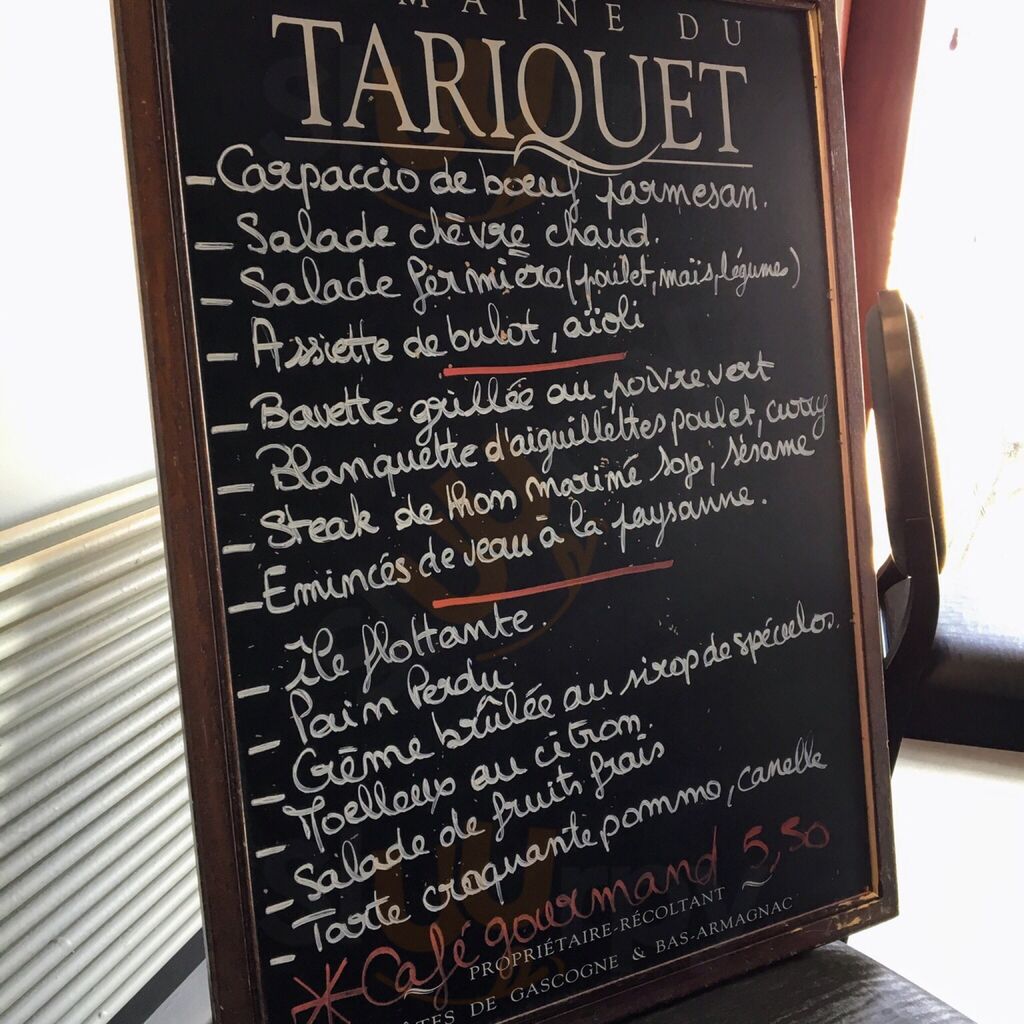 MAINE DU
TARIQUET
- Carpaccio de boeuf parmesan.
- Salade chèvre chaud.
- Salade fermière (poulet, maïs, légumes)
- Assiette de bulot, aïoli
- Bavette grillée au poivre vert
- Blanquette d'aiguillettes poulet, curry
- Steak de thon mariné soja, sésame
- Emincés de veau à la paysanne.
- île flottante.
- Pain Perdu
- Crème brûlée au sirop de spéculos.
- Moelleux au citron.
- Salade de fruits frais
- Tarte croquante pomme, canelle
* Café gourmand 5,50
PROPRIÉTAIRE-RÉCOLTANT
TES DE GASCOGNE & BAS-ARMAGNAC